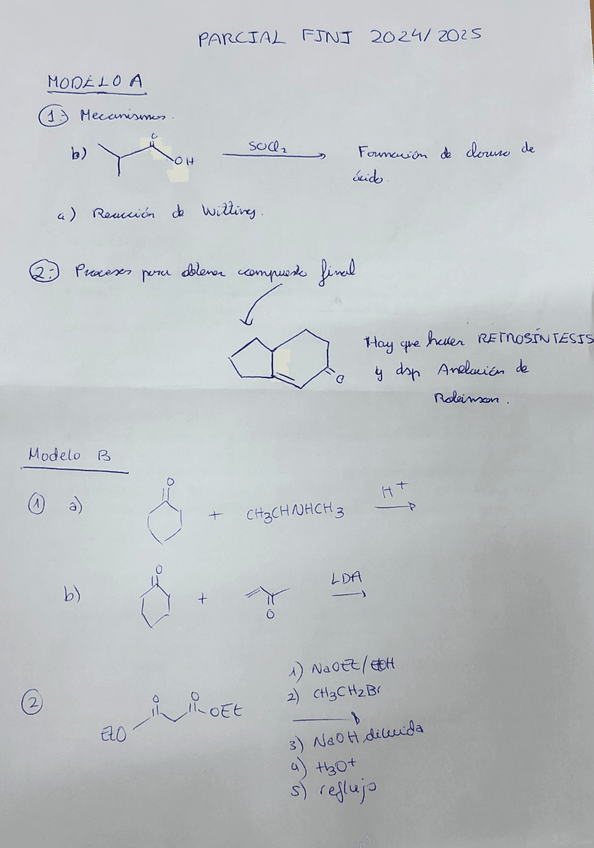 PARCIAL FINI 2024/2025
MODELO A
1: Mecanismos.
b) OH SOCl2 Formación de cloruro de
ácido.
a) Reacción de Witting.
2: Procesos para obtener compuesto final
Hay que hacer RETROSÍNTESIS
y dsp Anelación de
Robinson.
O
Modelo B
1 a) O + CH3CHNHCH3 H+
b) O + O LDA
2 EtO O O OEt
1) NaOEt/EtOH
2) CH3CH2Br
3) NaOH diluida
4) H3O+
5) reflujo